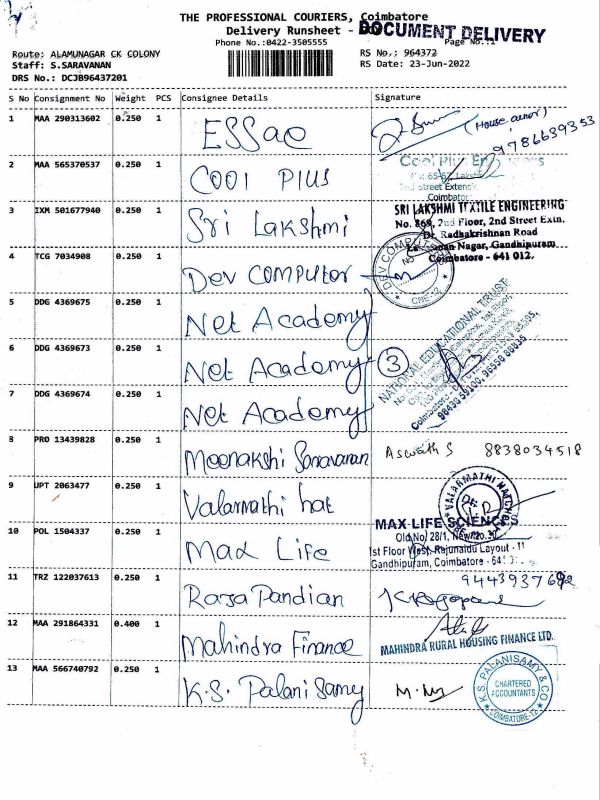 THE PROFESSIONAL COURIERS, Coimbatore
Delivery Runsheet - DOCUMENT DELIVERY
Phone No.:0422-3505555
Page No.:1
Route: ALAMUNAGAR CK COLONY
RS No.: 964372
Staff: S.SARAVANAN
RS Date: 23-Jun-2022
DRS No.: DCJB96437201
S No Consignment No Weight PCS Consignee Details Signature
1 MAA 290313602 0.250 1 ESSae
(House owner)
9786639353
2 MAA 565370537 0.250 1 COOl PlUS
Cool Plus
2nd Street
Coimbatore
3 IXM 501677940 0.250 1 Sri Lakshmi
SRI LAKSHMI TEXTILE ENGINEERING
No. 869, 2nd Floor, 2nd Street Extn.
Dr. Radhakrishnan Road
Nagar, Gandhipuram
Coimbatore - 641 012.
4 TCG 7034908 0.250 1 Dev COMPUtor
DEV COMPUTER
CBE-12
5 DDG 4369675 0.250 1 Net Academy
6 DDG 4369673 0.250 1 Net Academy
3
NATIONAL EDUCATIONAL TRUST
7 DDG 4369674 0.250 1 Net Academy
8 PRO 13439828 0.250 1 Meenakshi Saravanan
Aswath S 8838034518
9 UPT 2063477 0.250 1 Valarmathi hat
VALARMATHI
10 POL 1504337 0.250 1 Max Life
MAX LIFE SCIENCES
Old No. 28/1, New No.
1st Floor West, Rajunaidu Layout - II
Gandhipuram, Coimbatore - 641
11 TRZ 122037613 0.250 1 Raja Pandian
12 MAA 291864331 0.400 1 Mahindra Finance
MAHINDRA RURAL HOUSING FINANCE LTD.
13 MAA 566740792 0.250 1 K.S. Palani Samy
K.S. PALANISAMY & CO
CHARTERED
ACCOUNTANTS
COIMBATORE-12